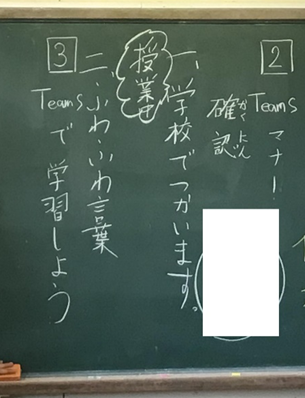 2
Teams マナー
確認
かくにん
一、学校でつかいます。
授業
二、ふわふわ言葉
3
Teams で学習しよう